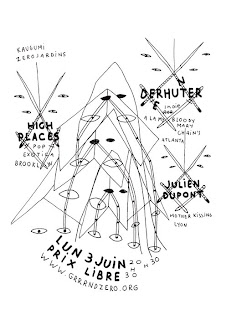 KAUGUMI
ZEROJARDINS
HIGH
PLACES
POP
EXOTICA
BROOKLYN
DERHUNTER
INDIE
A LAMB BLOODY
MARY
CHAIN'S
ATLANTA
JULIEN
DUPONT
MOTHER KISSING
LYON
LUN 3 JUIN
PRIX LIBRE
20H30
WWW.GRRRNDZERO.ORG